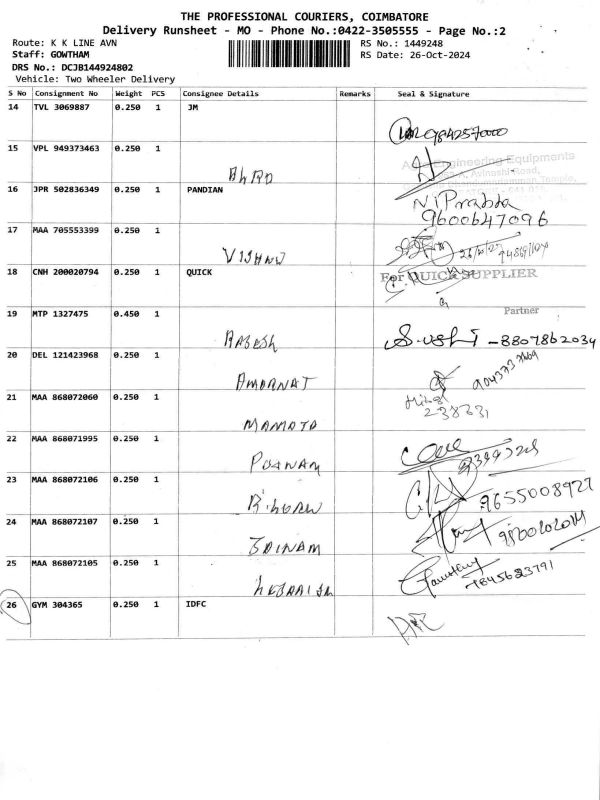 THE PROFESSIONAL COURIERS, COIMBATORE
Delivery Runsheet - MO - Phone No.:0422-3505555 - Page No.:2
Route: K K LINE AVN
RS No.: 1449248
Staff: GOWTHAM
RS Date: 26-Oct-2024
DRS No.: DCJB144924802
Vehicle: Two Wheeler Delivery
S No Consignment No Weight PCS Consignee Details Remarks Seal & Signature
14 TVL 3069887 0.250 1 JM
9842570000
15 VPL 949373463 0.250 1
Engineering Equipments
Avinashi Road,
16 JPR 502836349 0.250 1 PANDIAN
9600647096
17 MAA 705553399 0.250 1
VISHNU
18 CNH 200020794 0.250 1 QUICK
For QUICK SUPPLIER
Partner
19 MTP 1327475 0.450 1
8807862034
20 DEL 121423968 0.250 1
AMBRNAT
21 MAA 868072060 0.250 1
238331
MAMATA
22 MAA 868071995 0.250 1
POONAM
23 MAA 868072106 0.250 1
9655008927
24 MAA 868072107 0.250 1
JAINAM
25 MAA 868072105 0.250 1
9845623791
26 GYM 304365 0.250 1 IDFC